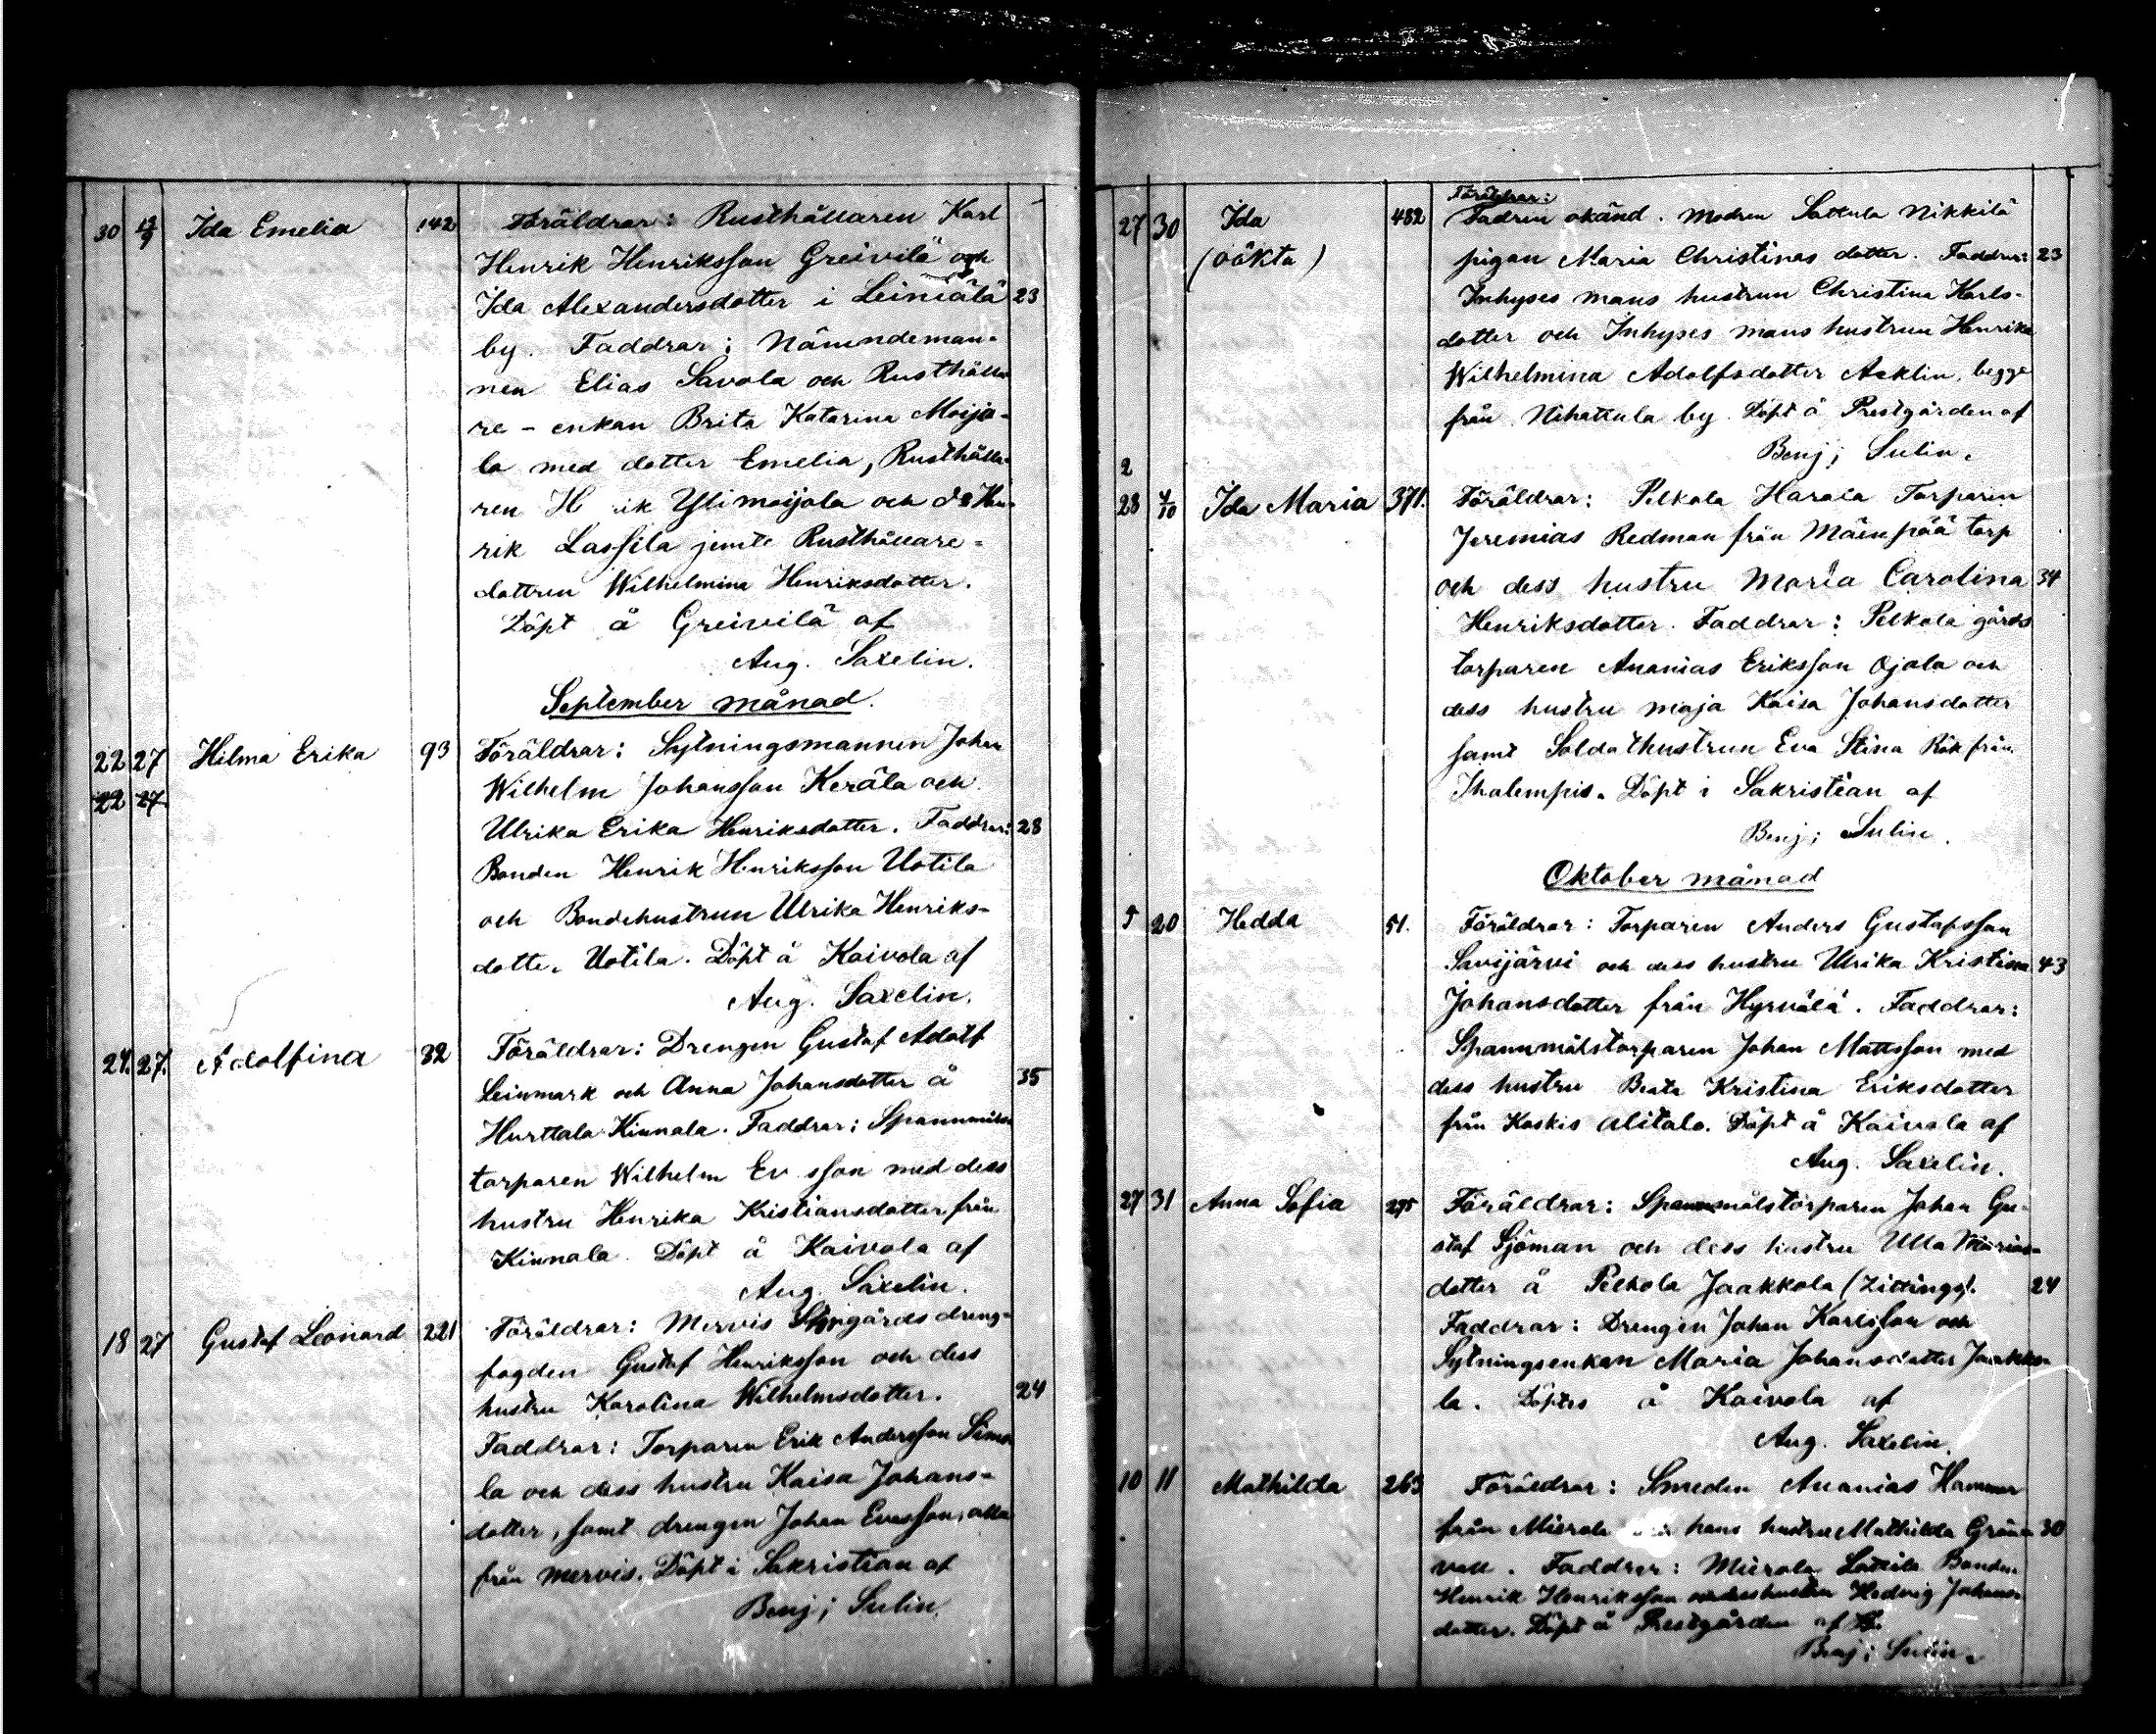 30 12/9 Ida Emelia 142 Föräldrar: Rusthållaren Karl
Henrik Henriksson Greivilä och
Ida Alexandersdotter i Leiniälä 23
by. Faddrar: Nämndeman-
nen Elias Savola och Rusthålla
re-enkan Brita Katarina Moija-
la med dotter Emelia, Rusthålla-
ren H ik Ylimoijala och d:o Hen-
rik Lassila jemte Rusthållare-
dottren Wilhelmina Henriksdotter.
Döpt å Greivilä af
Aug. Saxelin.
September månad.
22 27 Hilma Erika 93 Föräldrar: Sytningsmannen Johan
22 27 Wilhelm Johansson Keräla och
Ulrika Erika Henriksdotter. Faddrar: 28
Bonden Henrik Henriksson Uotila
och Bondehustrun Ulrika Henriks-
dotter Uotila. Döpt å Kaivola af
Aug. Saxelin.
24. 27. Adolfina 32 Föräldrar: Drengen Gustaf Adolf
Leinmark och Anna Johansdotter å 35
Hurttala Kinnala. Faddrar: Spannmåls
torparen Wilhelm Er sson med dess
hustru Henrika Kristiansdotter från
Kinnala. Döpt å Kaivola af
Aug. Saxelin.
18 27 Gustaf Leonard 221 Föräldrar: Mervis dreng-
fogden Gustaf Henriksson och dess
hustru Karolina Wilhelmsdotter. 24
Faddrar: Torparen Erik Andersson Simo
la och dess hustru Kaisa Johans-
dotter, samt drengen Johan Evasson, alla
från Mervis. Döpt i Sakristian af
Benj; Sulin.
27 30 Ida 482 Föräldrar:
Fadren okänd. Modren Sattula Nikkilä
(oäkta) pigan Maria Christinas dotter. Faddrar: 23
Inhyses mans hustrun Christina Karls-
dotter och Inhyses mans hustrun Henrika
Wilhelmina Adolfsdotter Asklin, begge
från Nihattula by. Döpt å Prestgården af
2 Benj; Sulin.
28 4/10 Ida Maria 371. Föräldrar: Pelkola Harala Torparen
Jeremias Redman från Mäenpää torp
och dess hustru Maria Carolina 34
Henriksdotter. Faddrar: Pelkola gårds
torparen Ananias Eriksson Ojala och
dess hustru Maja Kaisa Johansdotter
samt Soldathustrun Eva Stina Rök från
Ihalempis. Döpt i Sakristian af
Benj; Sulin.
Oktober månad
5 20 Hedda 51. Föräldrar: Torparen Anders Gustafsson
Savijärvi och dess hustru Ulrika Kristina 43
Johansdotter från Hyrvälä. Faddrar:
Spannmålstorparen Johan Mattsson med
dess hustru Beata Kristina Eriksdotter
från Koskis Alitalo. Döpt å Kaivola af
Aug. Saxelin.
27 31 Anna Sofia 295 Föräldrar: Spannmålstorparen Johan Gu-
staf Sjöman och dess hustru Ulla Marias-
dotter å Pelkola Jaakkola (Zittingg). 24
Faddrar: Drengen Johan Karlsson och
Sytningsenkan Maria Johansdotter Jaakko-
la. Döptes å Kaivola af
Aug. Saxelin.
10 11 Mathilda 263 Föräldrar: Smeden Ananias Hammar
från Mierola hans hustru Mathilda Grön- 30
vall. Faddrar: Mierola Lattila Bonden
Henrik Henriksson och dess hustru Hedvig Johans-
dotter. Döpt å Prestgården af
Benj; Sulin.